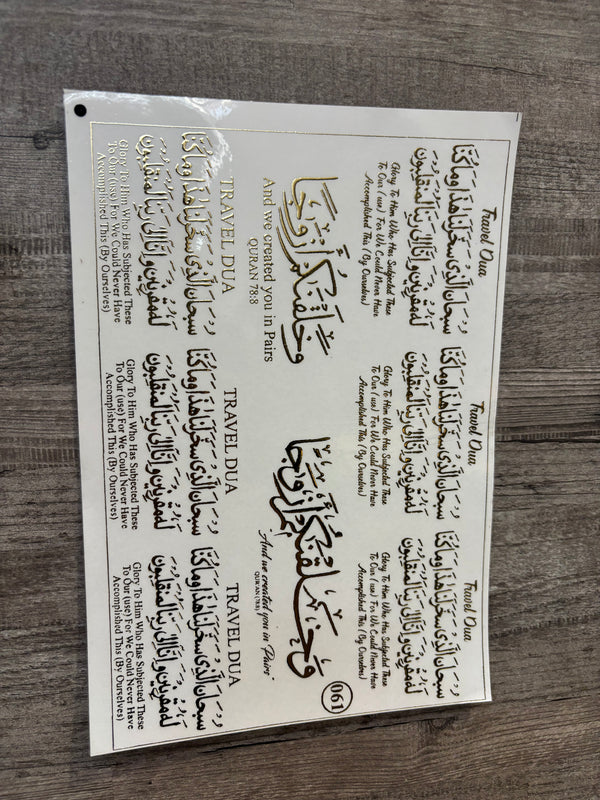 Travel Dua
سبحان الذي سخر لنا هذا وما كنا
له مقرنين وإنا إلى ربنا لمنقلبون
Glory To Him Who Has Subjected These
To Our ( use ) For We Could Never Have
Accomplished This ( By Ourselves)
Travel Dua
سبحان الذي سخر لنا هذا وما كنا
له مقرنين وإنا إلى ربنا لمنقلبون
Glory To Him Who Has Subjected These
To Our ( use ) For We Could Never Have
Accomplished This ( By Ourselves)
Travel Dua
سبحان الذي سخر لنا هذا وما كنا
له مقرنين وإنا إلى ربنا لمنقلبون
Glory To Him Who Has Subjected These
To Our ( use ) For We Could Never Have
Accomplished This ( By Ourselves)
وَخَلَقْنَكُمْ أَزْوَجًا
And we created you in Pairs
QURAN 78:8
وَخَلَقْنَكُمْ أَزْوَجًا
"And we created you in Pairs"
QUR'AN (78:8)
061
TRAVEL DUA
سبحان الذي سخر لنا هذا وما كنا
له مقرنين وإنا إلى ربنا لمنقلبون
Glory To Him Who Has Subjected These
To Our (use) For We Could Never Have
Accomplished This (By Ourselves)
TRAVEL DUA
سبحان الذي سخر لنا هذا وما كنا
له مقرنين وإنا إلى ربنا لمنقلبون
Glory To Him Who Has Subjected These
To Our (use) For We Could Never Have
Accomplished This (By Ourselves)
TRAVEL DUA
سبحان الذي سخر لنا هذا وما كنا
له مقرنين وإنا إلى ربنا لمنقلبون
Glory To Him Who Has Subjected These
To Our (use) For We Could Never Have
Accomplished This (By Ourselves)